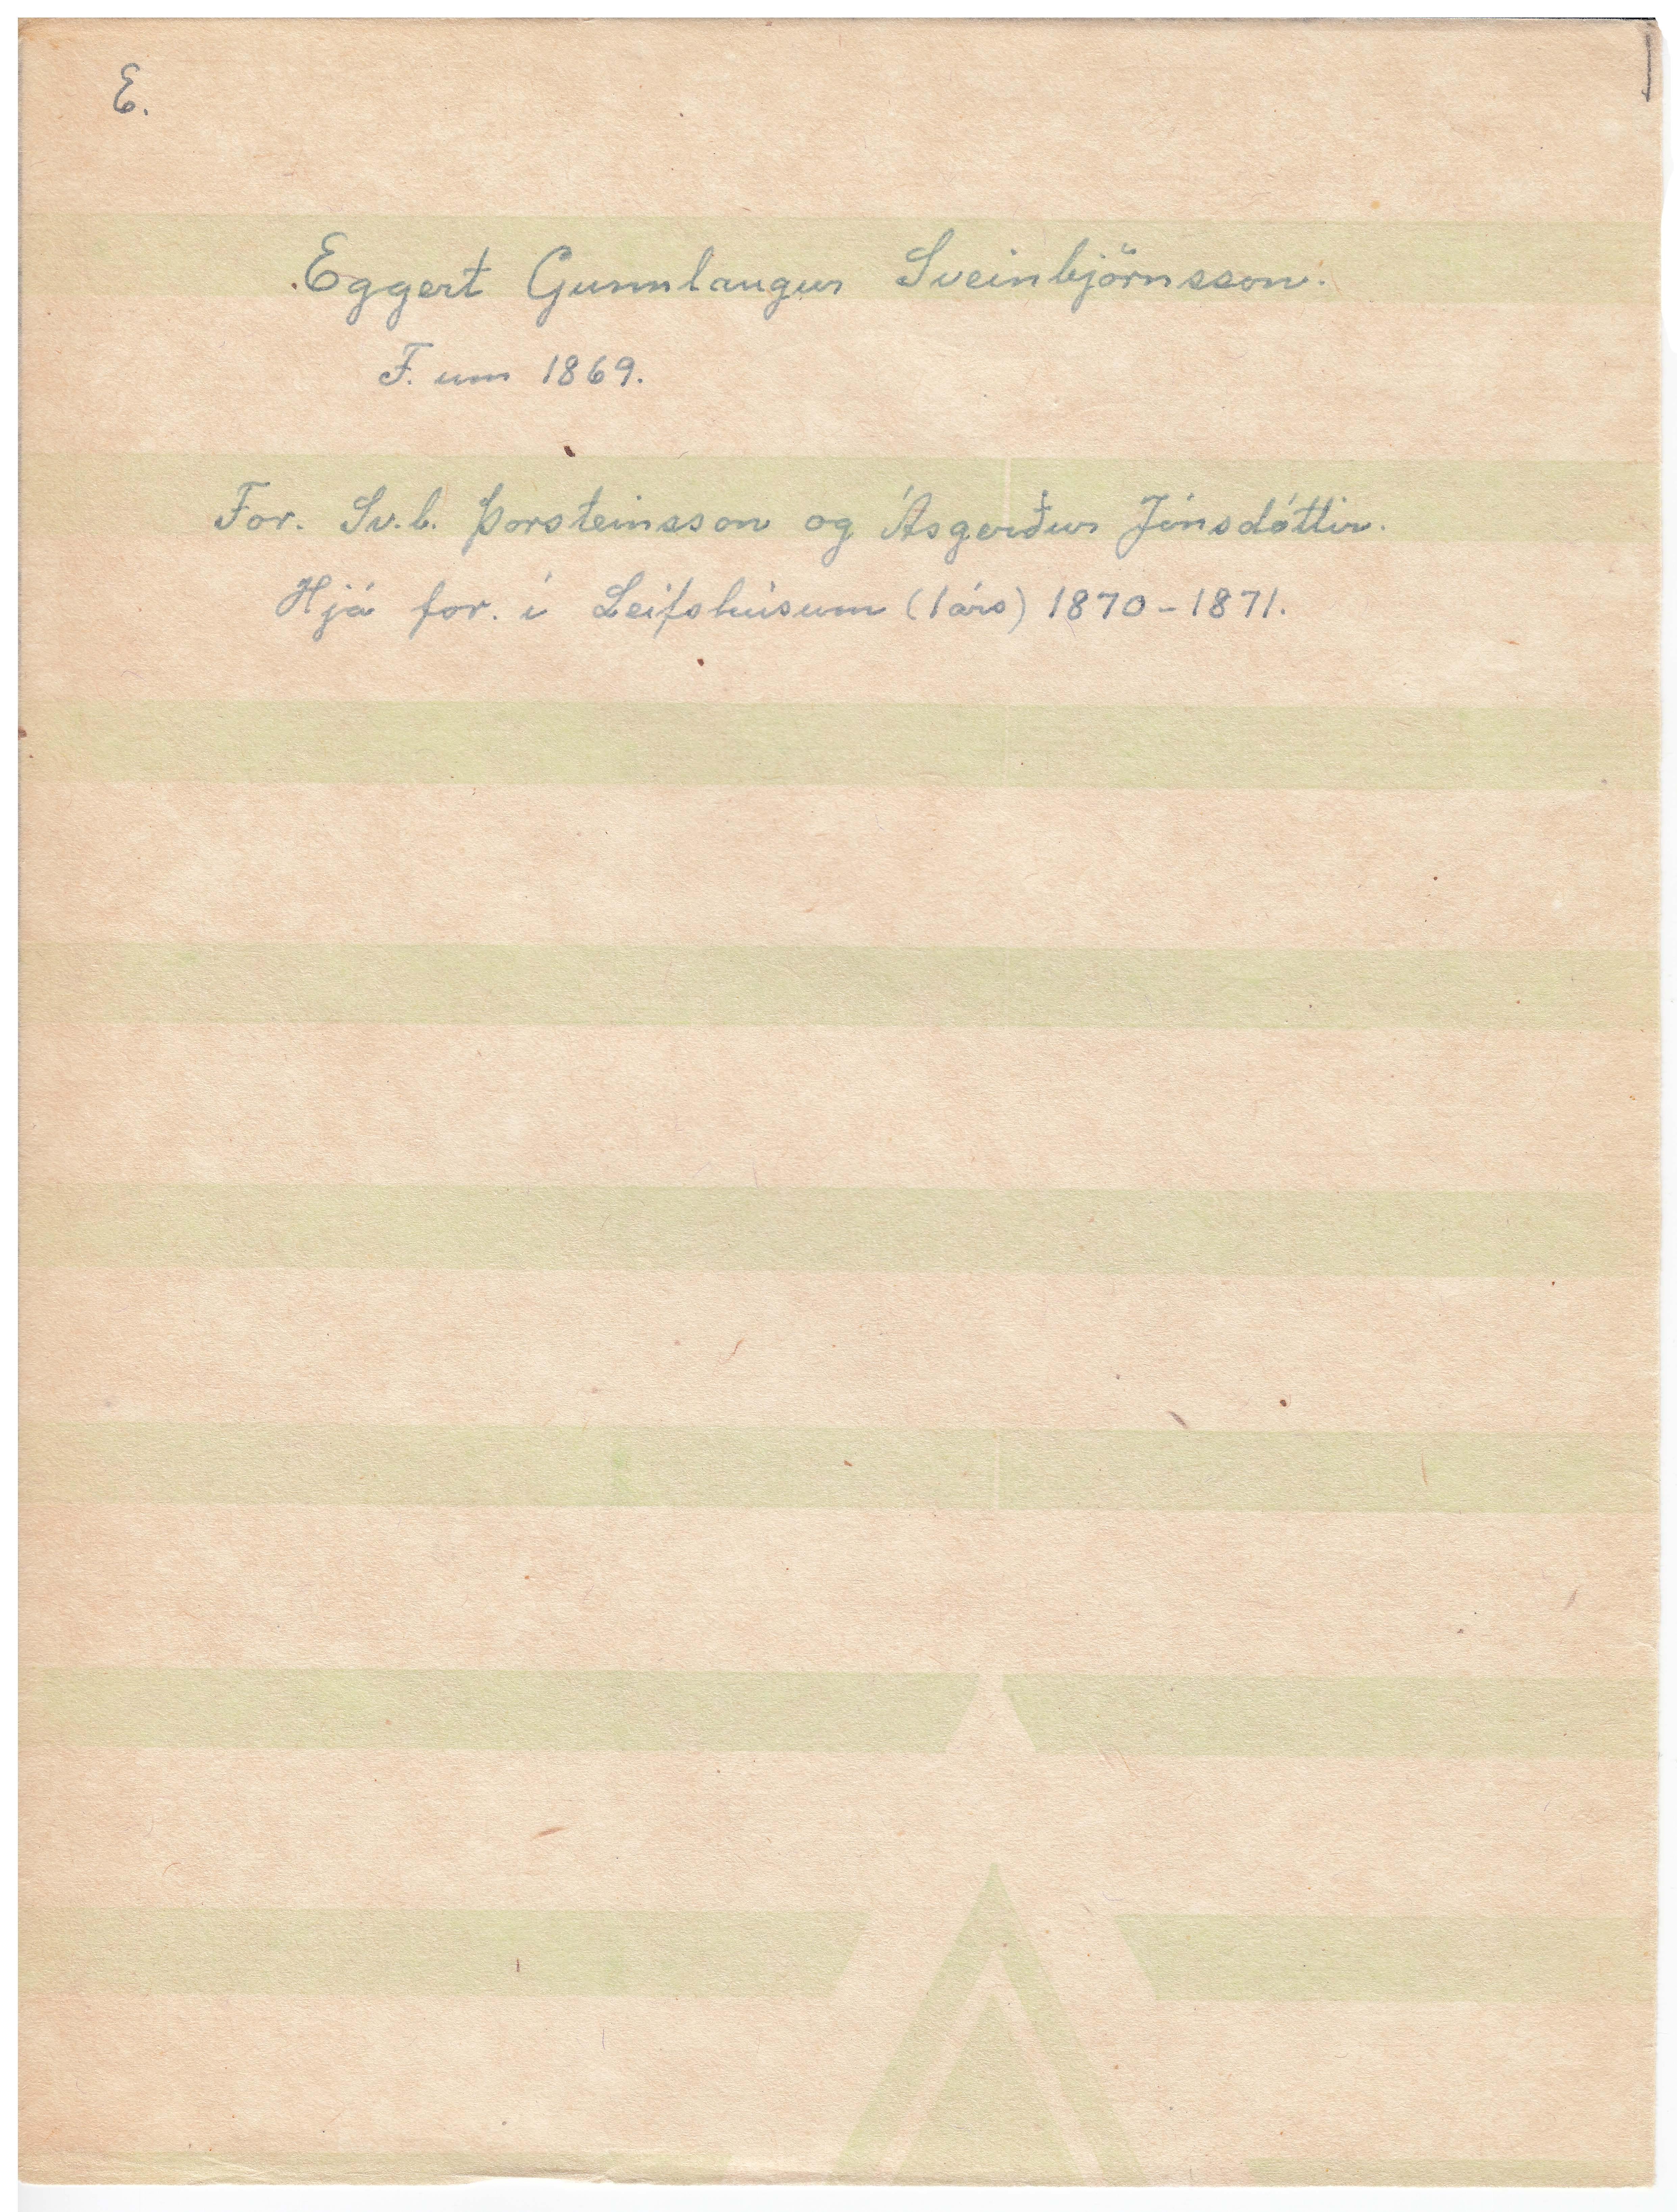 E.
Eggert Gunnlaugur Sveinbjörnsson.
F. um 1869.
For. Sv.b. Þorsteinsson og Ásgerður Jónsdóttir.
Hjá for. í Leifshúsum (1 árs) 1870-1871.